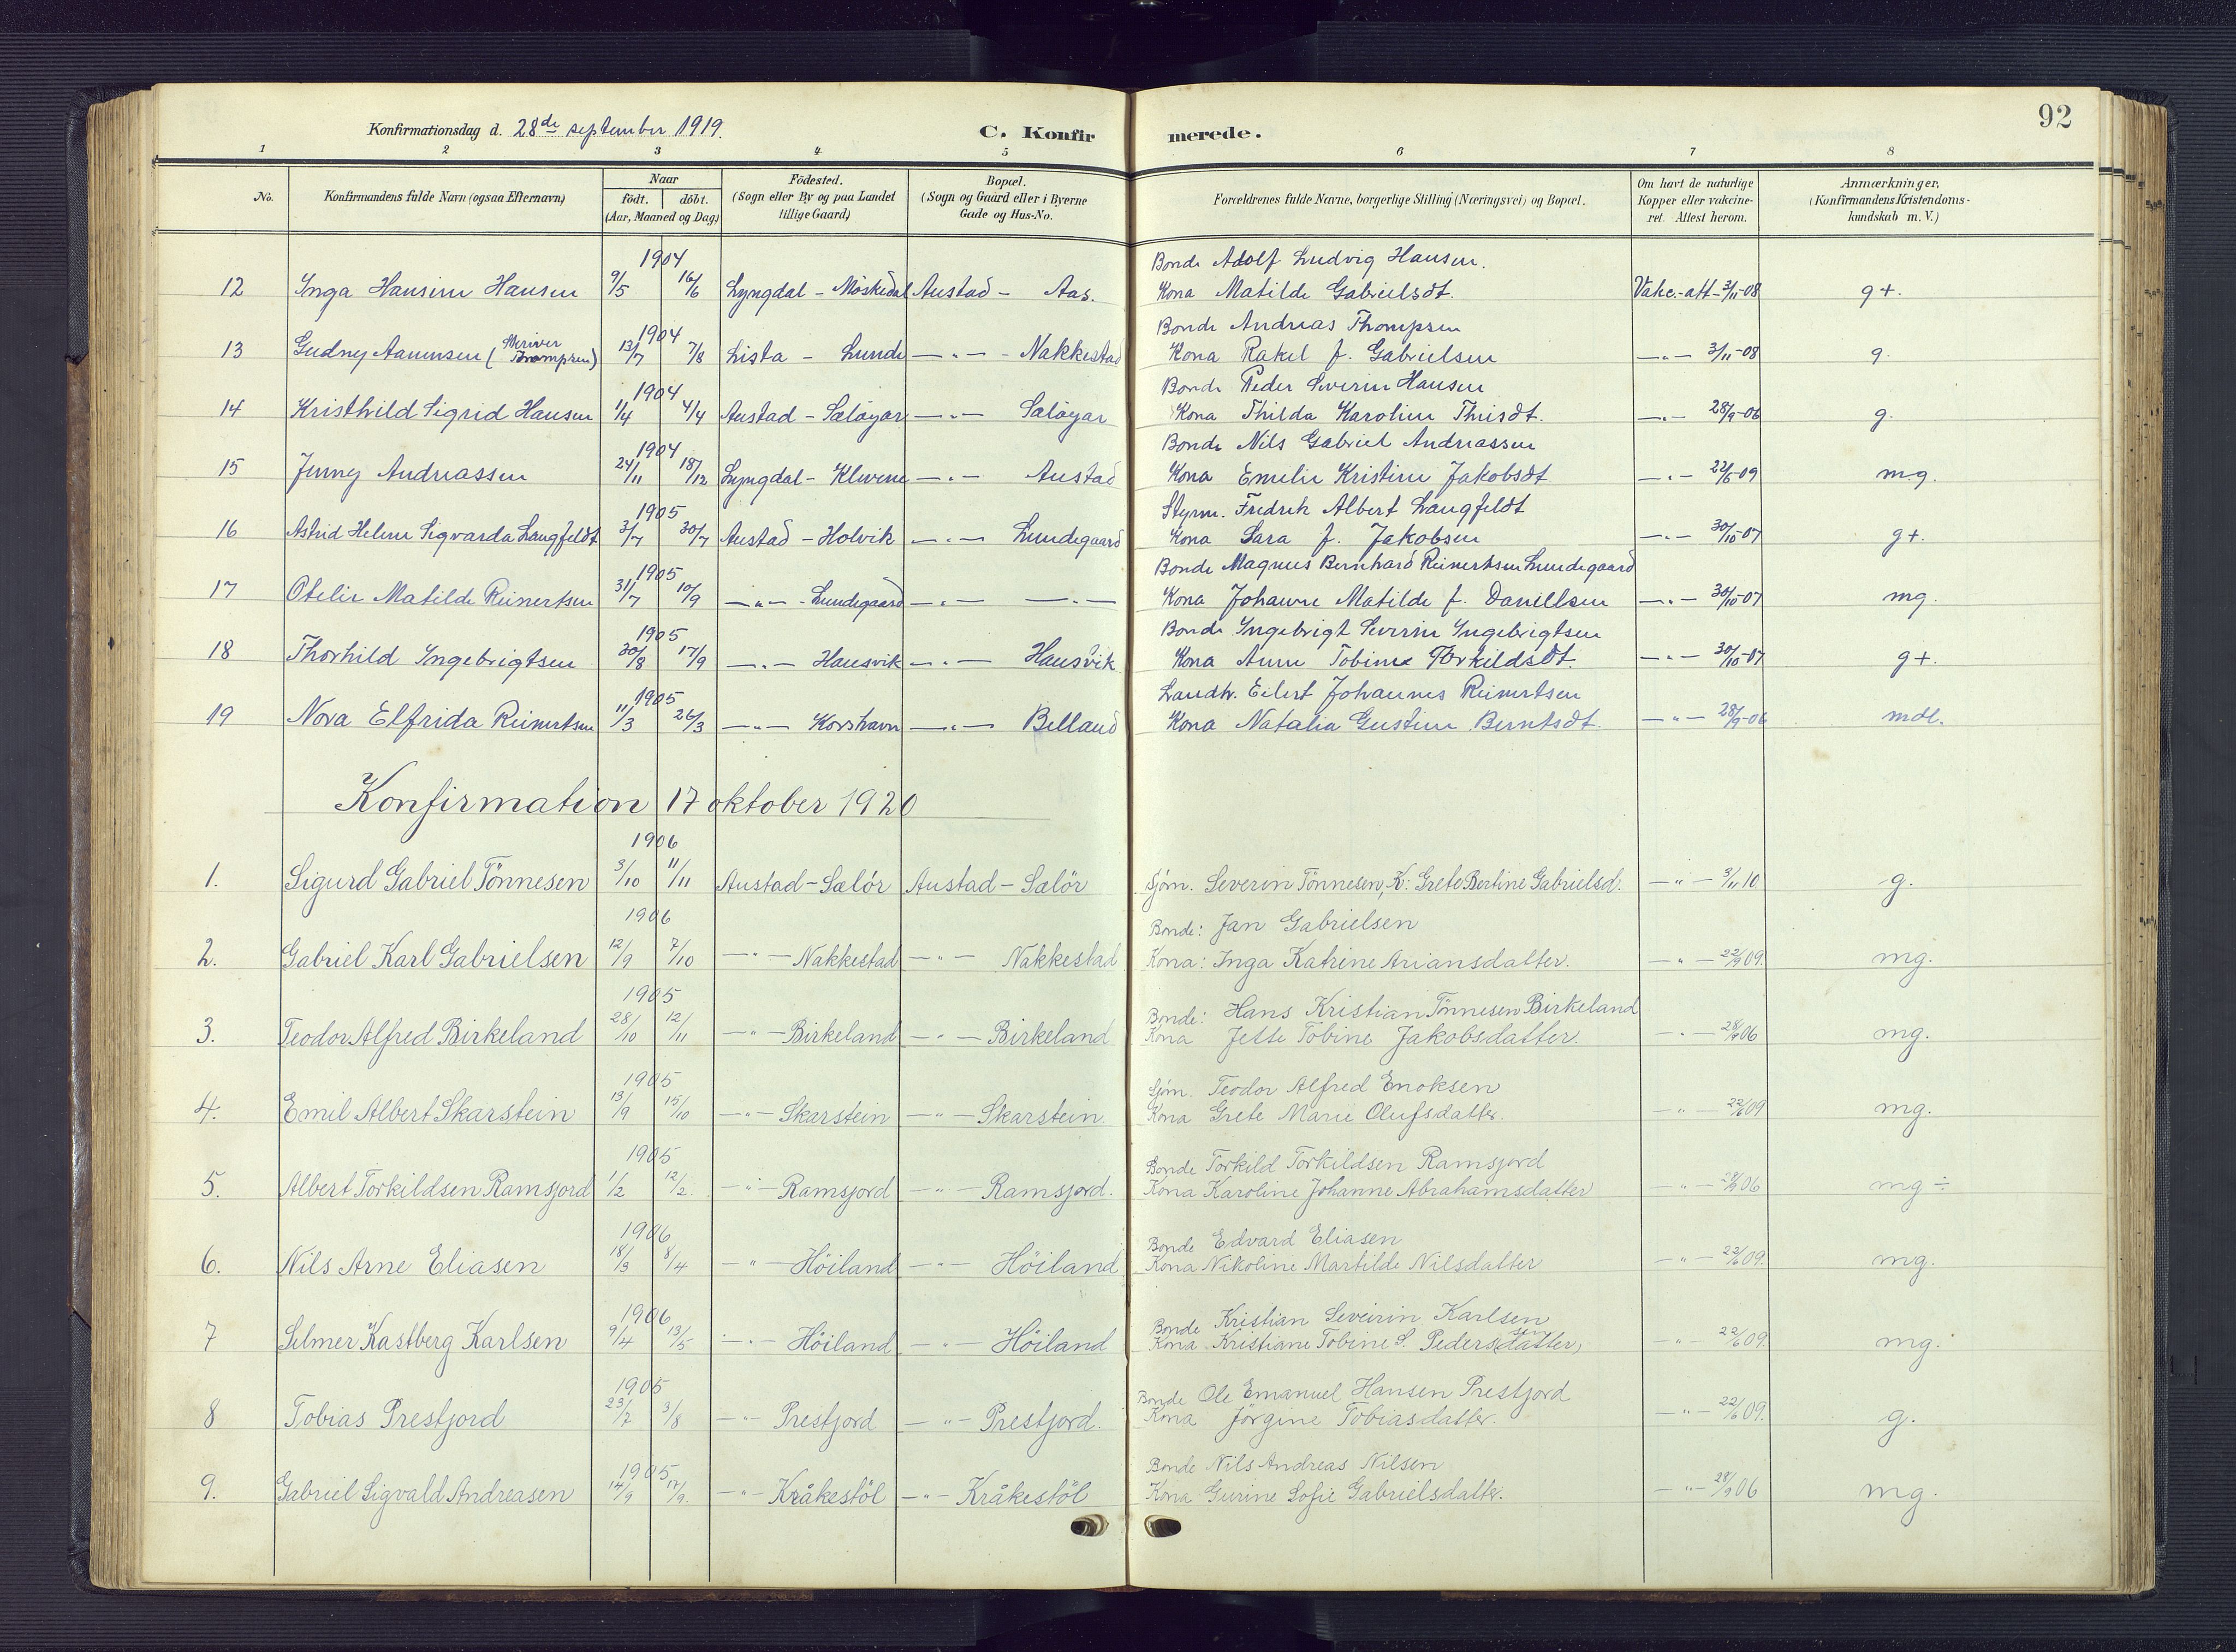 92
Konfirmationsdag d. 28de september 1919.
C. Konfirmerede.
1 2 3 4 5 6 7 8
No.
Konfirmandens fulde Navn (ogsaa Efternavn)
Naar
födt. döbt.
(Aar, Maaned og Dag)
Födested.
(Sogn eller By og paa Landet
tillige Gaard)
Bopæl.
(Sogn og Gaard eller i Byerne
Gade og Hus-No.
Forældrenes fulde Navne, borgerlige Stilling (Næringsvei) og Bopæl.
Om havt de naturlige
Kopper eller vakcine-
ret. Attest herom.
Anmærkninger.
(Konfirmandens Kristendoms-
kundskab m. V.)
1904 Bonde Adolf Ludvig Hansen.
12 Ynga Hansine Hansen 9/5 16/6 Lyngdal - Möskedal Austad - Aas. Kona Matilde Gabrielsdt. Vakc.-att - 3/11-08 g+.
1904 Bonde Andreas Thompsen
13 Gudny Aanensen (Skriver Thompsen) 13/7 7/8 Lista - Lunde —"— - Nakkestad Kona Rakel f. Gabrielsen —"— 3/11-08 g.
1904 Bonde Peder Severin Hansen
14 Kristhild Sigrid Hansen 1/4 4/4 Austad - Salöyar —"— Salöyar Kona Thilda Karoline Thisdt. —"— 28/9-06 g.
1904 Bonde Nils Gabriel Andreassen
15 Jenny Andreassen 24/11 18/12 Lyngdal - Klevene —"— Austad Kona Emelie Kristine Jakobsdt —"— 22/6-09 mg.
1905 Styrm. Fredrik Albert Langfeldt
16 Astrid Helene Sigvarda Langfeldt 3/7 30/7 Austad - Holvik —"— Lundegaard Kona Sara f. Jakobsen —"— 30/10-07 g+.
1905 Bonde Magnus Bernhard Reinertsen Lundegaard
17 Otelie Matilde Reinertsen 31/7 10/9 —"— - Lundegaard —"— —"— Kona Johanne Matilde f. Daniellsen —"— 30/10-07 mg.
1905 Bonde Yngebrigt Severin Yngebrigtsen
18 Thorhild Yngebrigtsen 30/8 17/9 —"— Hausvik —"— Hausvik Kona Anne Tobine Torkildsdt. —"— 30/10-07 g+.
1905 Landh. Eilert Johannes Reinertsen
19 Nora Elfrida Reinertsen 11/3 26/3 —"— Korshavn —"— Belland Kona Natalia Gustine Berntsdt. —"— 28/9-06 mdl.
Konfirmation 17 oktober 1920
1906
1. Sigurd Gabriel Tönnesen 3/10 11/11 Austad - Salör Austad - Salör Sjöm. Severin Tönnesen, K: Grete Bertine Gabrielsd. —"— 3/11 10 g.
1906 Bonde: Jan Gabrielsen
2. Gabriel Karl Gabrielsen 12/9 7/10 —"— Nakkestad —"— Nakkestad Kona: Inga Katrine Ariansdatter. —"— 09. mg.
1905 Bonde: Hans Kristian Tönnesen Birkeland
3. Teodor Alfred Birkeland 28/10 12/11 —"— Birkeland —"— Birkeland Kona Jette Tobine Jakobsdatter. —"— 28/9 06 mg.
1905 Sjöm. Teodor Alfred Enoksen
4. Emil Albert Skarstein 13/9 15/10 —"— Skarstein —"— Skarstein. Kona Grete Marie Olufsdatter. —"— 22/6 09 mg.
1905 Bonde Torkild Torkildsen Ramsjord
5. Albert Torkildsen Ramsjord 1/2 12/2. —"— Ramsjord —"— Ramsjord. Kona Karoline Johanne Abrahamsdatter —"— 28/9 06 mg ÷
1906 Bonde Edvard Eliasen
6. Nils Arne Eliasen 18/3 8/4 —"— Höiland —"— Höiland Kona Nikoline Martilde Nilsdatter —"— 22/6 09. mg.
1906 Bonde Kristian Severin Karlsen
7 Selmer Kastberg Karlsen 9/4 13/5 —"— Höiland —"— Höiland Kona Kristiane Tobine S. Pedersdatter, —"— 22/6 09. mg.
1905 Bonde Ole Emanuel Hansen Prestjord
8 Tobias Prestjord 23/7 3/8 —"— Prestjord —"— Prestjord. Kona Jörgine Tobiasdatter. —"— 22/6 09. g.
1905 Bonde Nils Andreas Nilsen
9. Gabriel Sigvald Andreasen 14/9 17/9. —"— Kråkestöl —"— Kråkestöl Kona Gurine Sofie Gabrielsdatter. —"— 28/9 06 mg.